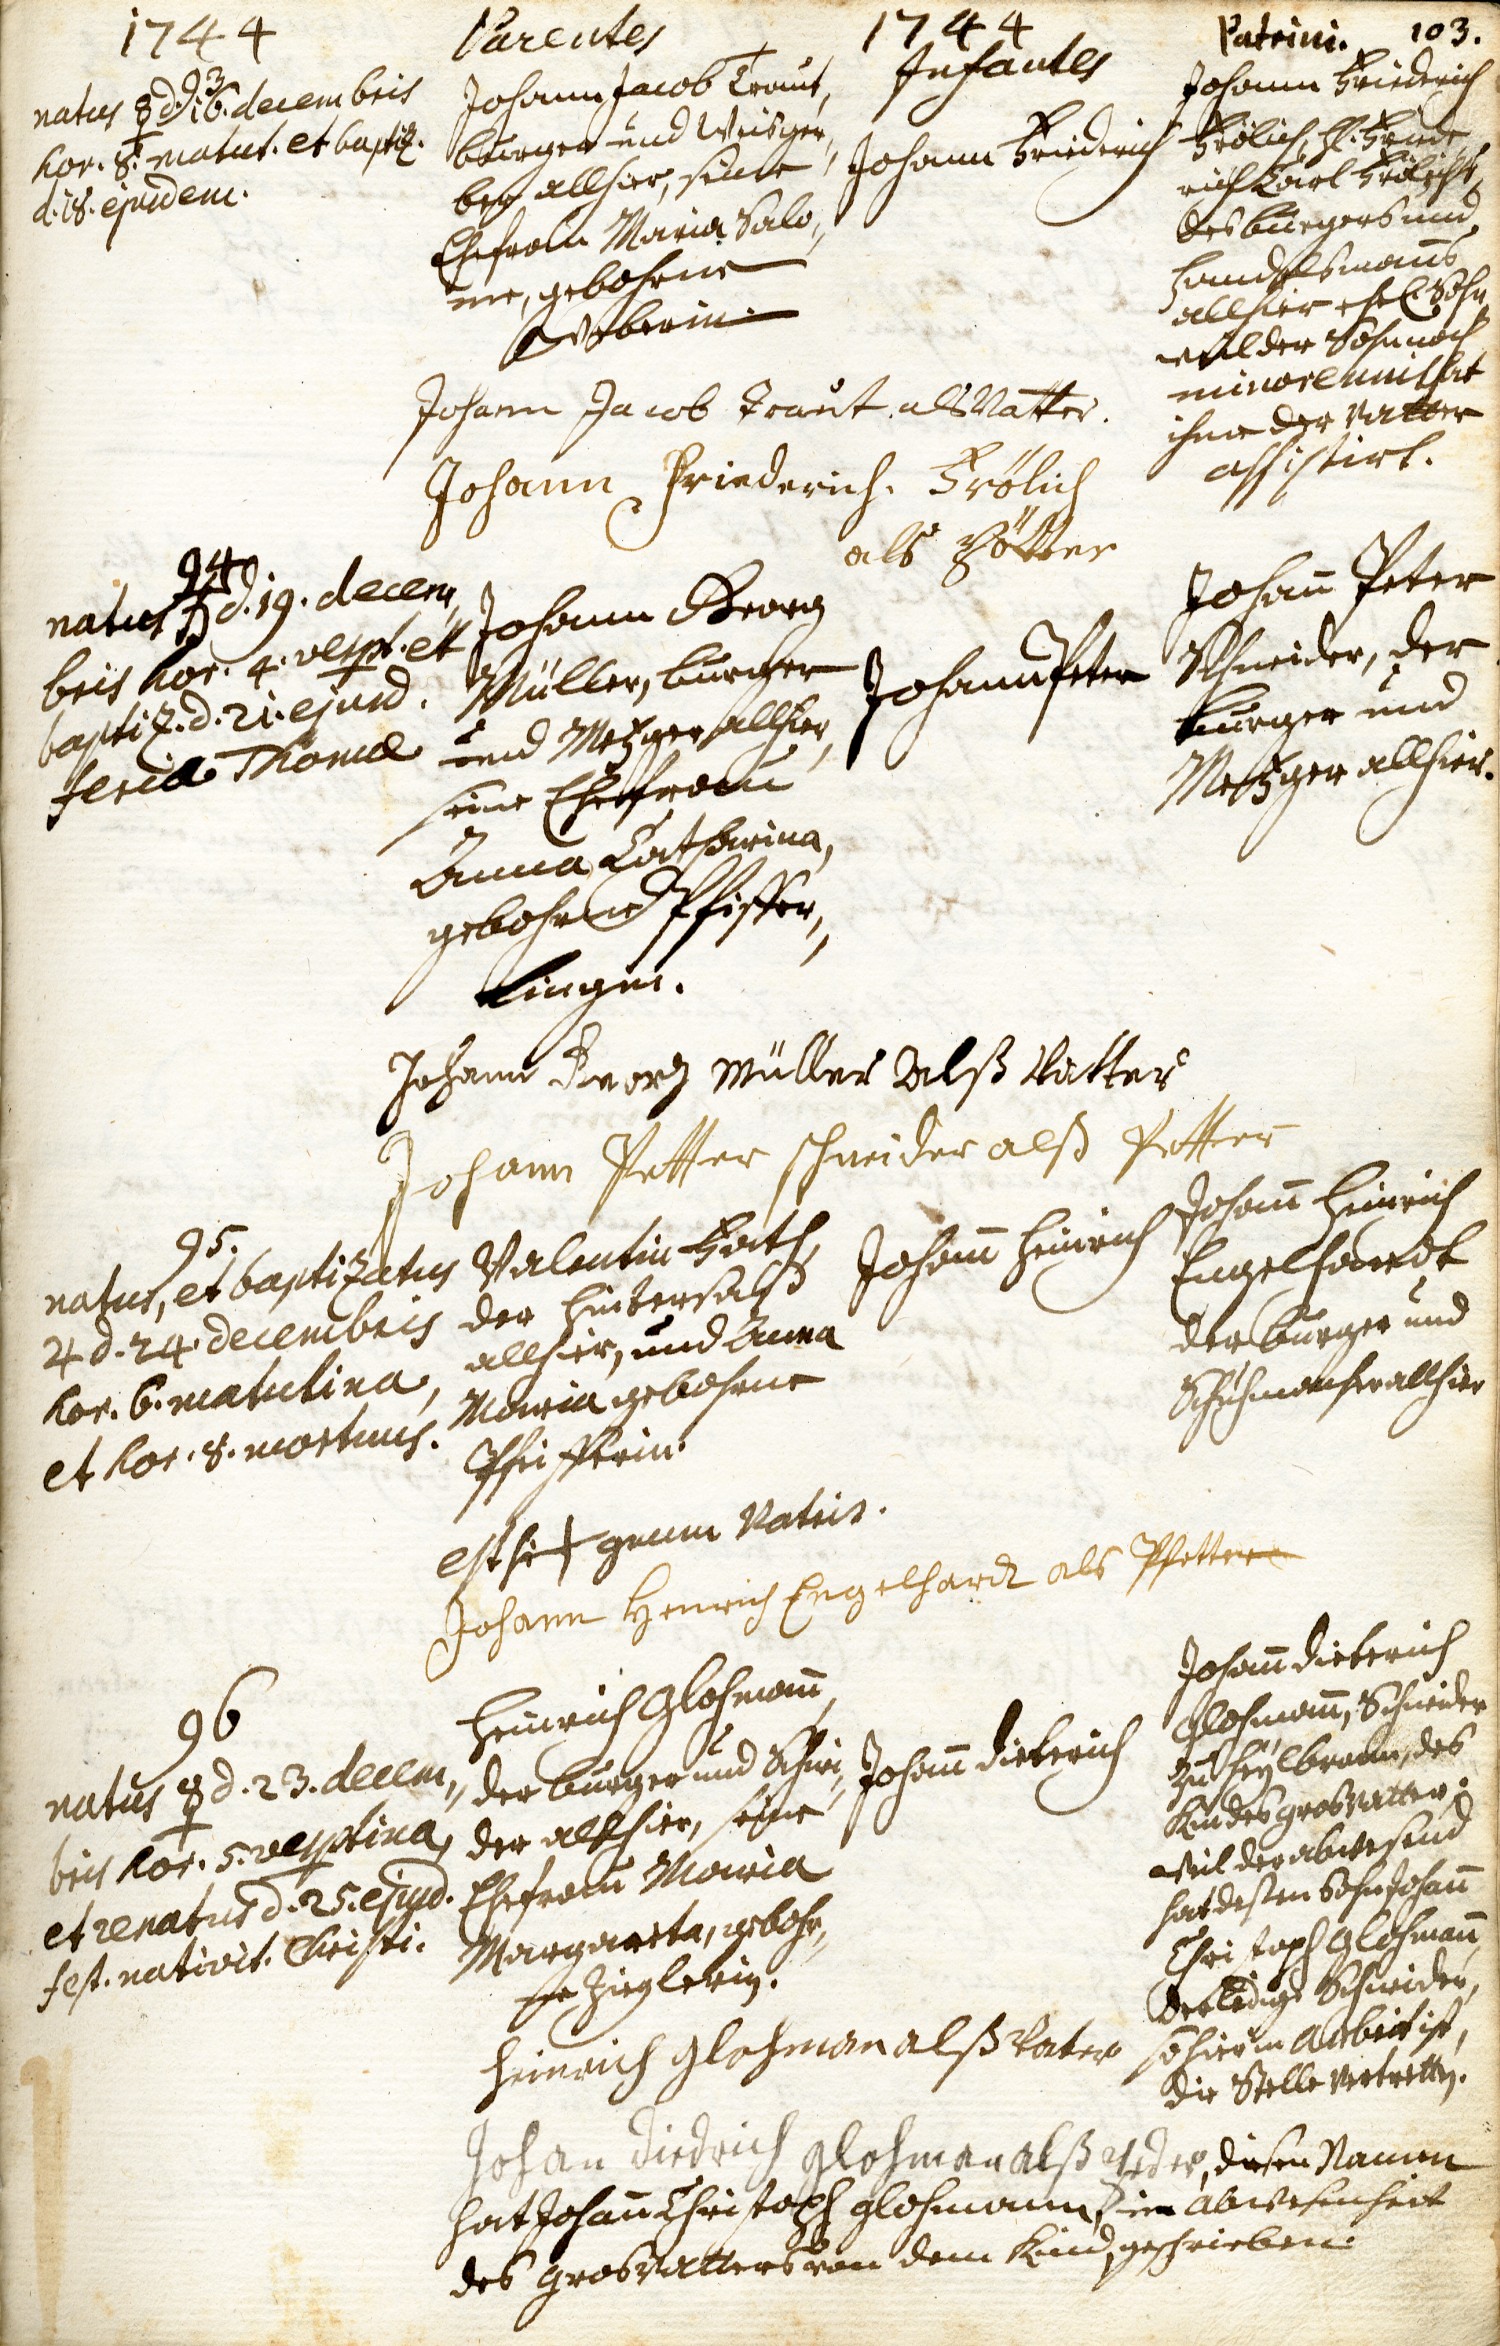 1744
Parentes
1744
Infantes
Patrini. 103.
93
natus ☿ d. 16. decembris
hor. 8. matut. et baptiz.
d. 18. ejusdem.
Johann Jacob Traut,
burger und Weisger„
ber allhier, seine
Ehefrau Maria Salo„
me, gebohrne
Johann Friederich
Johann Friederich
Frölich, H. Friede„
rich Carl Frölichs,
des burgers und
handelsmanns
allhier ehel. Sohn,
weil der Sohn noch
minorenn ist hat
ihme der Vatter
assistirt.
Johann Jacob Traut als Vatter.
Johann Friederich. Frölich
als Pötter
94
natus ♄ d. 19. decem„
bris hor. 4. vespt. et
baptiz. d. 21. ejusd.
feria Thomæ
Johann Georg
Müller, burger
und Metzger allhier,
seine Ehefrau
Anna Catharina,
gebohrne Pfister„
lingin.
Johann Peter
Johañ Peter
Schneider, der
burger und
Metzger allhier.
Johann Georg Müller Alß Vatter
Johann Petter schneider alß Petter
95.
natus, et baptizatus
♃ d. 24. decembris
hor. 6. matutina,
et hor. 8. mortuus.
Valentin Hath,
der hintersaß
allhier, und Anna
Maria gebohrne
Pfeifferin.
Johañ Heinrich
Johañ Heinrich
Engelhardt
der burger und
Schuhmacher allhier
est sig+num Patris.
Johann Henrich Engelhardt als Pfetter
96
natus ☿ d. 23. decem„
bris hor. 5. vesptina,
et renatus d. 25. ejusd.
fest. nativit. Christi.
Heinrich Glohmañ,
der burger und Schnei„
der allhier, seine
Ehefrau Maria
Margareta, gebohr„
ne Zieglerin.
Johañ dieterich
Johañ dieterich
Glohmañ, Schneider
zu Heylbronn, des
Kindes grosvatter;
weil der abwesend
hat dessen Sohn Johañ
Christoph Glohmañ,
der ledige Schneider,
so hier in Arbeit ist,
die Stelle vertretten.
Heinrich Glohman alß Vater
Johan Diedrich Glohman alß Peder, diesen Namen
hat Johañ Christoph Glohmann, in Abwesenheit
des Grosvatters von dem Kind, geschrieben.